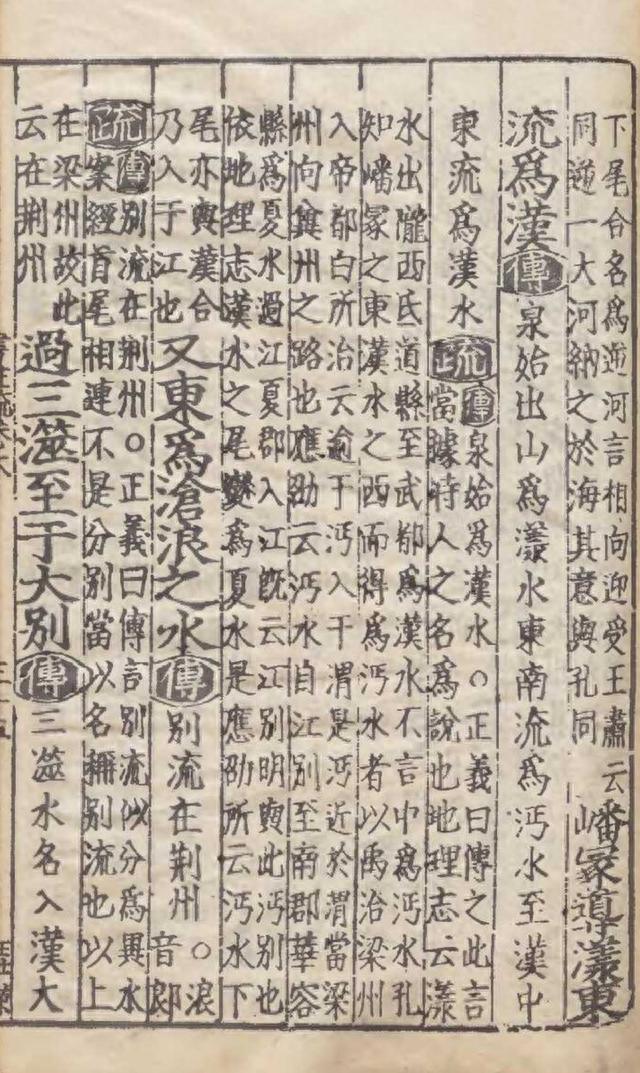 下尾合名為逆河言相向迎受王肅云
同逆一大河納之於海其意與孔同
嶓冢導漾東
流為漢傳泉始出山為漾水東南流為沔水至漢中
東流為漢水疏
傳泉始為漢水○正義曰傳之此言
當據時人之名為說也地理志云漾
水出隴西氐道縣至武都為漢水不言中為沔水孔
知嶓冢之東漢水之西而得為沔水者以禹治梁州
入帝都白所治云逾于沔入于渭是沔近於渭當梁
州向兾州之路也應劭云沔水自江別至南郡華容
縣為夏水過江夏郡入江既云江別明與此沔別也
依地理志漢水之尾變為夏水是應劭所云沔水下
尾亦與漢合
乃入于江也
又東為滄浪之水傳別流在荆州○
浪
音郎
疏
傳別流在荆州○正義曰傳言別流似分為異水
案經首尾相連不是分別當以名稱別流也以上
在梁州故此
云在荆州
過三澨至于大別傳三澨水名入漢大